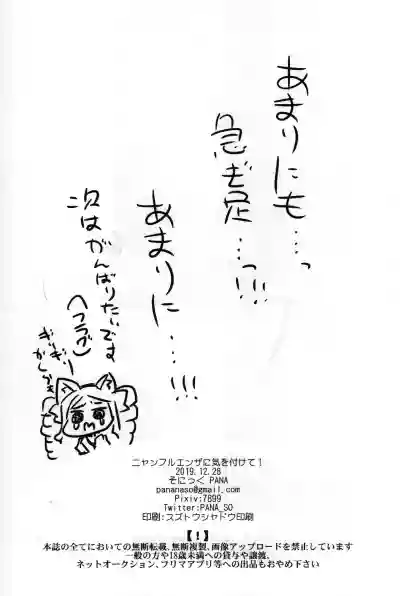 あまりにも…っ
急ぎ足…っ!!!
あまりに…!!!
次はがんばりたいです
(フラグ)
ぎりぎり
ニャンフルエンザに気を付けて!
2019.12.28
そにっく PANA
pananaso@gmail.com
Pixiv:7899
Twitter:PANA_SO
印刷:スズトウシャドウ印刷
【!】
本誌の全てにおいての無断転載、無断複製、画像アップロードを禁止しています
一般の方や18歳未満への貸与や譲渡、
ネットオークション、フリマアプリ等への出品もおやめ下さい